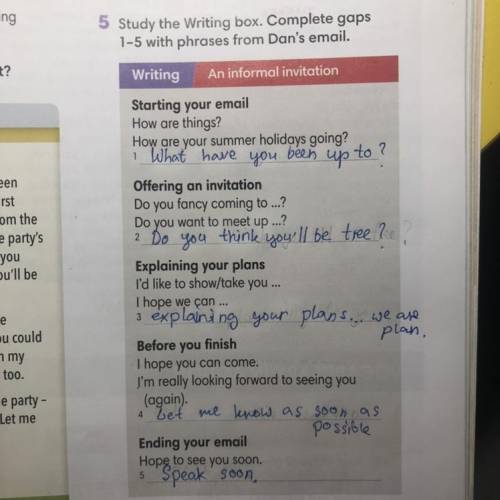 ing
t?
een
rst
om the
e party's
you
ou'll be
e
ou could
n my
too.
e party –
Let me
5 Study the Writing box. Complete gaps
1–5 with phrases from Dan's email.
Writing An informal invitation
Starting your email
How are things?
How are your summer holidays going?
1 What have you been up to?
Offering an invitation
Do you fancy coming to ...?
Do you want to meet up ...?
2 Do you think you'll be tree?
Explaining your plans
I'd like to show/take you ...
I hope we can ...
3 explaining your plans... we are
plan.
Before you finish
I hope you can come.
I'm really looking forward to seeing you
(again).
4 Let me know as soon as
possible
Ending your email
Hope to see you soon.
5 Speak soon.